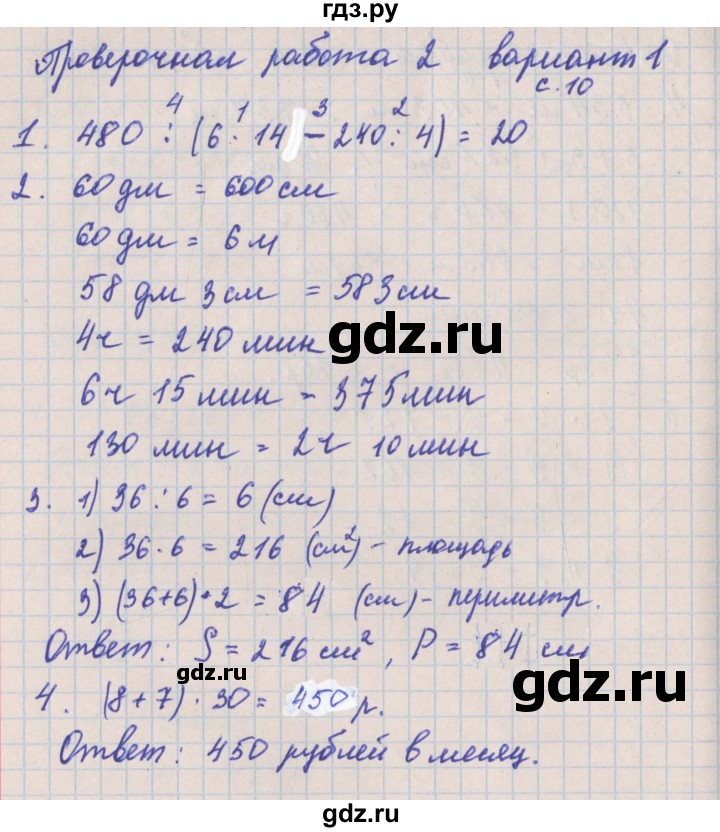 гдз.ру
Проверочная работа 2 вариант 1
с. 10
4 1 3 2
1. 480 : (6 · 14 - 240 : 4) = 20
2. 60 дм = 600 см
60 дм = 6 м
58 дм 3 см = 583 см
4ч = 240 мин
gdz.ru
6ч 15 мин - 375 мин
130 мин = 2ч 10 мин
3. 1) 36 : 6 = 6 (см)
2) 36 · 6 = 216 (см²) - площадь
3) (36+6) · 2 = 84 (см) - периметр.
Ответ: S = 216 см², P = 84 см
gdz.ru
gdz.ru
4. (8+7) · 30 = 450 р.
Ответ: 450 рублей в месяц.
gdz.ru